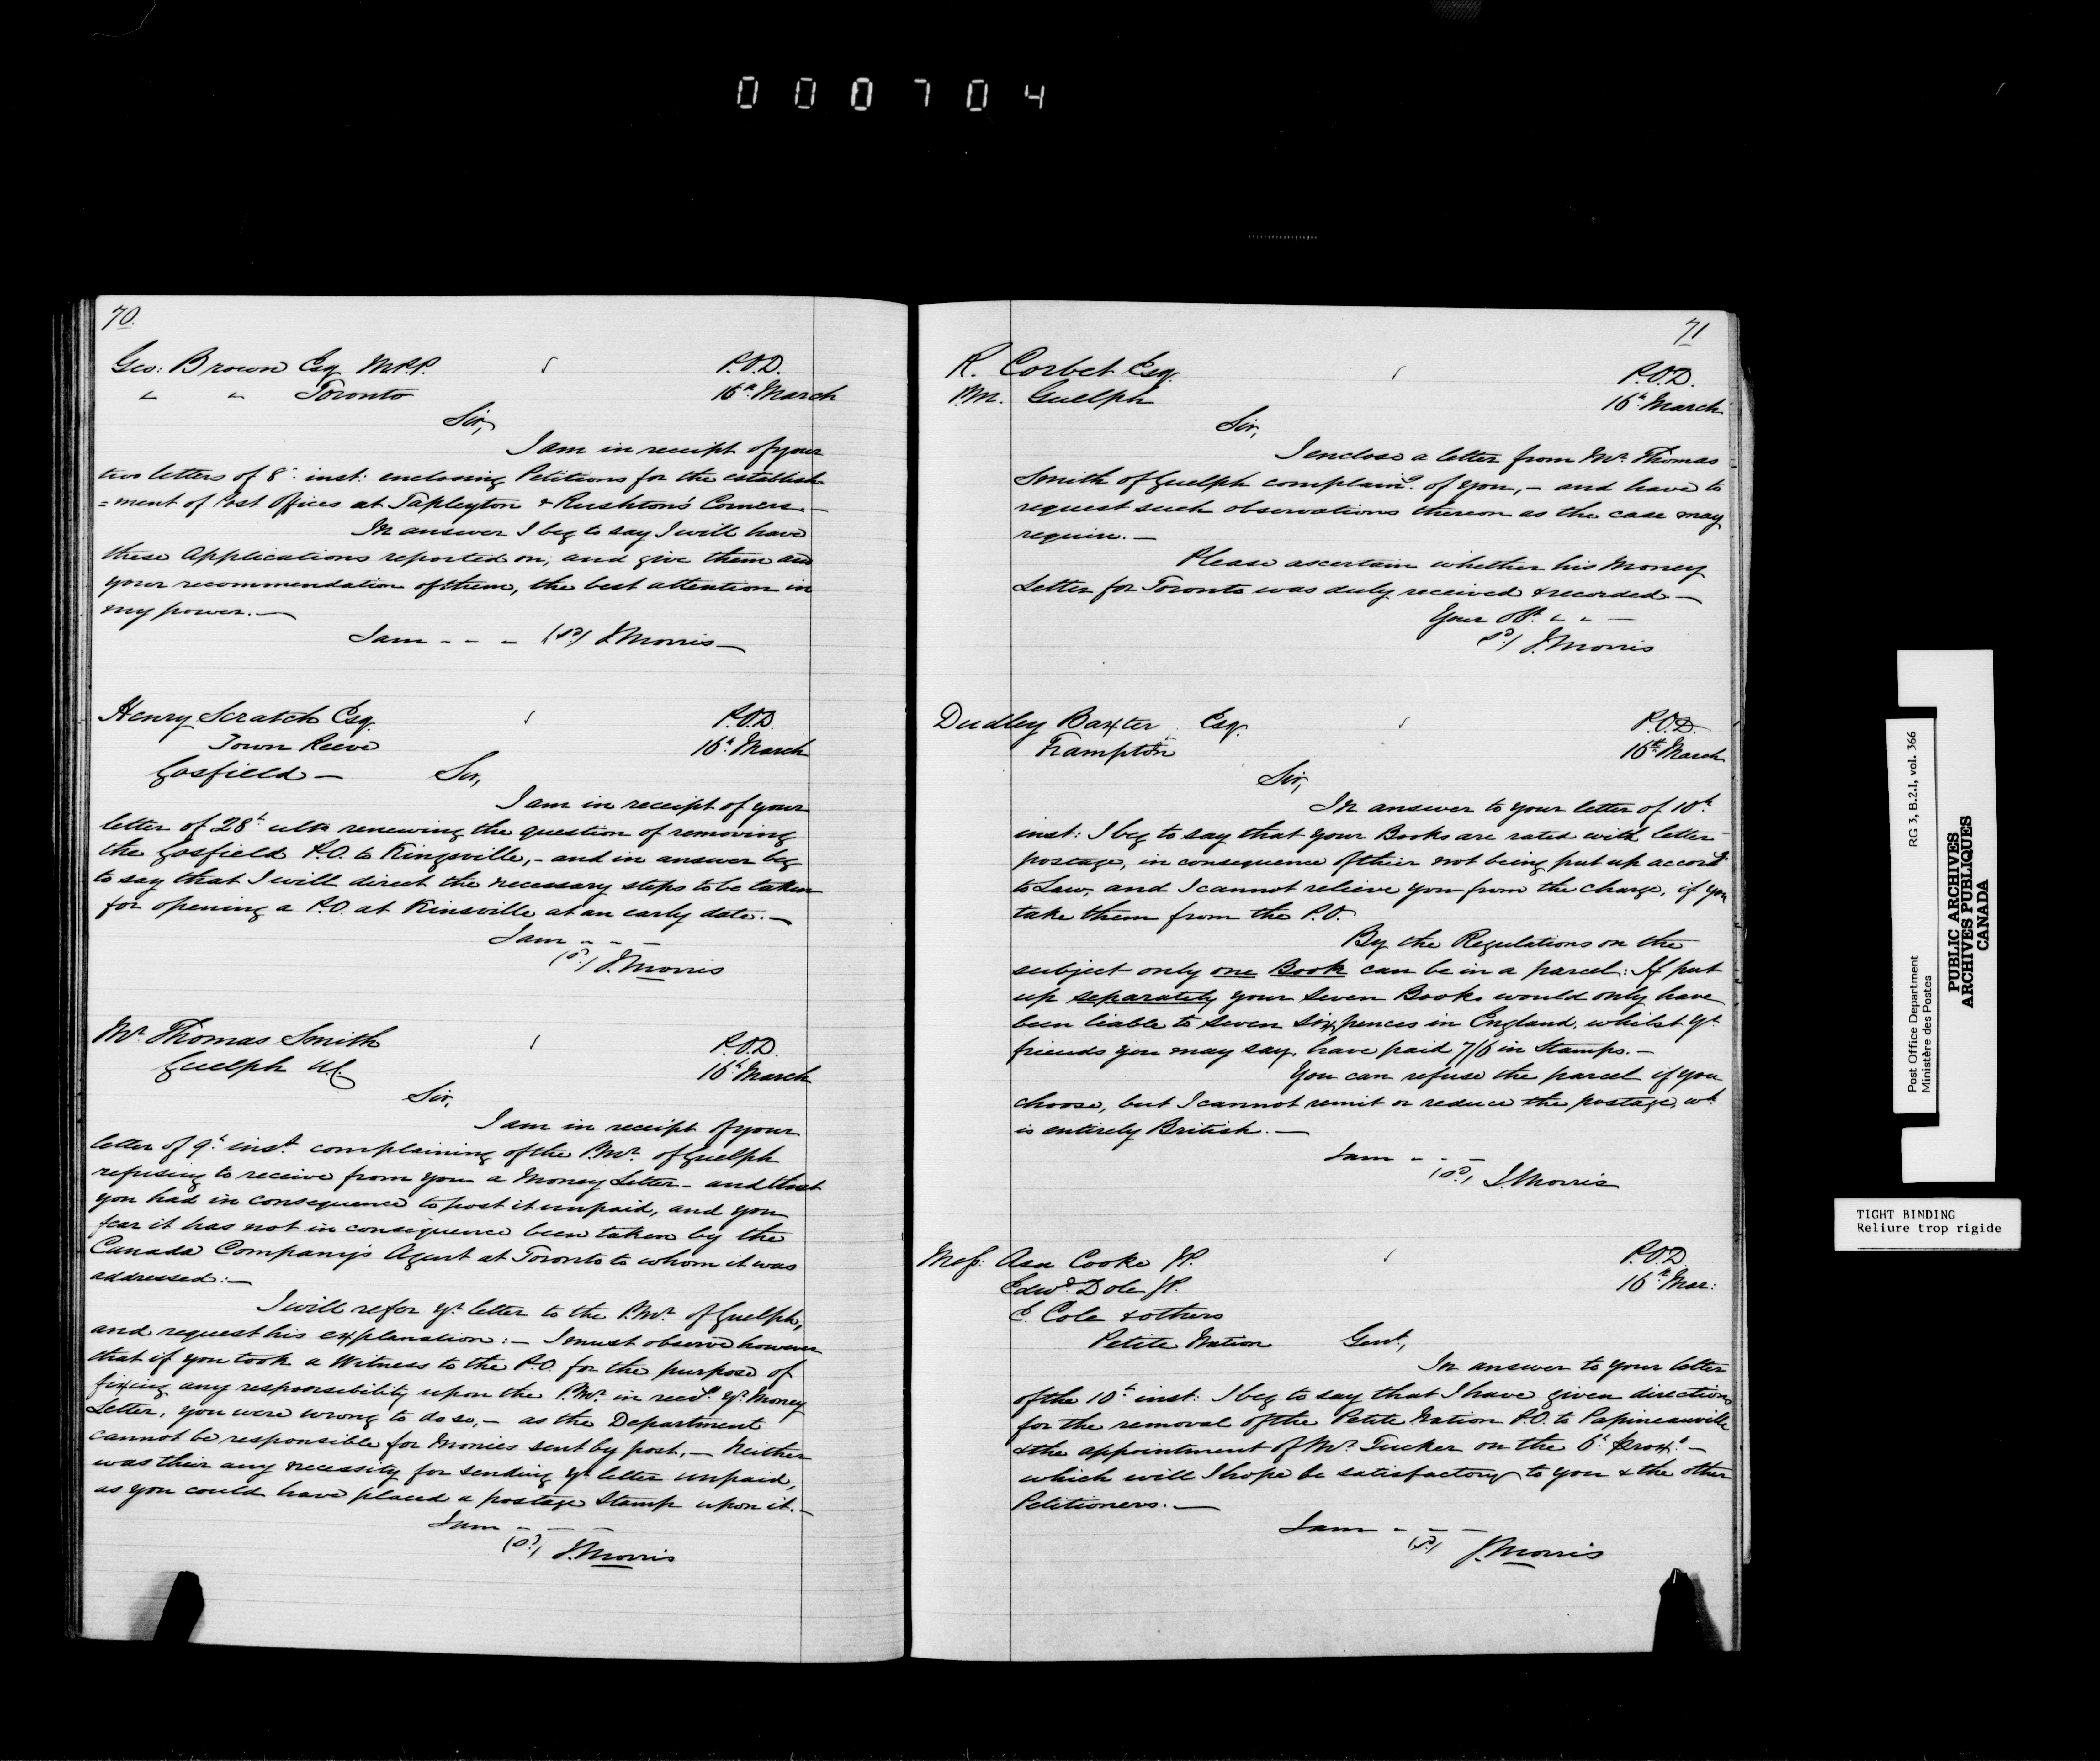 000704
70.
Geo: Brown Esq M.P.P. P.O.D.
" " Toronto 16th March
Sir,
I am in receipt of your
two letters of 8th inst: enclosing Petitions for the establish-
=ment of Post Offices at Tapleyton & Rushton's Corners.—
In answer I beg to say I will have
these Applications reported on, and give them and
your recommendation of them, the best attention in
my power.—
I am - - - (sd) J. Morris—
Henry Scratch Esq. P.O.D.
Town Reeve 16th March
Gosfield — Sir,
I am in receipt of your
letter of 28th ulto renewing the question of removing
the Gosfield P.O. to Kingsville,- and in answer beg
to say that I will direct the necessary steps to be taken
for opening a P.O. at Kinsville at an early date.—
I am - - -
(sd) J. Morris
Mr. Thomas Smith P.O.D.
Guelph U.C. 16th March
Sir,
I am in receipt of your
letter of 9th inst. complaining of the P.Mr. of Guelph
refusing to receive from you a Money Letter - and that
you had in consequence to post it unpaid, and you
fear it has not in consequence been taken by the
Canada Company's Agent at Toronto to whom it was
addressed:—
I will refer yr. letter to the P.Mr. of Guelph,
and request his explanation:— I must observe however
that if you took a Witness to the P.O. for the purpose of
fixing any responsibility upon the P.Mr. in recvg. yr. Money
Letter, you were wrong to do so,— as the Department
cannot be responsible for Monies sent by post,— Neither
was their any necessity for sending yr. letter unpaid,
as you could have placed a postage Stamp upon it.—
I am - - -
(sd) J. Morris
71
R. Corbet Esq. P.O.D.
P.M. Guelph 16th March
Sir,
I enclose a letter from Mr. Thomas
Smith of Guelph complaing. of you,- and have to
request such observations thereon as the case may
require.—
Please ascertain whether his Money
Letter for Toronto was duly received & recorded.—
Your Obt. " " —
(sd) J. Morris
Dudley Baxter Esq. P.O.D.
Frampton 16th March
Sir,
In answer to your letter of 10th
inst: I beg to say that your Books are rated with letter
postage, in consequence of their not being put up accordg.
to Law, and I cannot relieve you from the charge, if you
take them from the P.O.
By the Regulations on the
subject only one Book can be in a parcel: If put
up separately your seven Books would only have
been liable to seven sixpences in England, whilst yr.
friends you may say, have paid 7/6 in Stamps.—
You can refuse the parcel if you
choose, but I cannot remit or reduce the postage, wh.
is entirely British.—
I am - - -
(sd) J. Morris
Mess. Asa Cooke JP. P.O.D
Edwd. Dole JP. 16th Mar:
E. Cole & others
Petite Nation Gent,
In answer to your letter
of the 10th inst: I beg to say that I have given directions
for the removal of the Petite Nation P.O. to Papineauville
& the appointment of Mr. Tucker on the 6th proxo.—
which will I hope be satisfactory to you & the other
Petitioners.—
I am - - -
(sd) J. Morris
Post Office Department RG 3, B.2.I, vol. 366
Ministère des Postes
PUBLIC ARCHIVES
ARCHIVES PUBLIQUES
CANADA
TIGHT BINDING
Reliure trop rigide